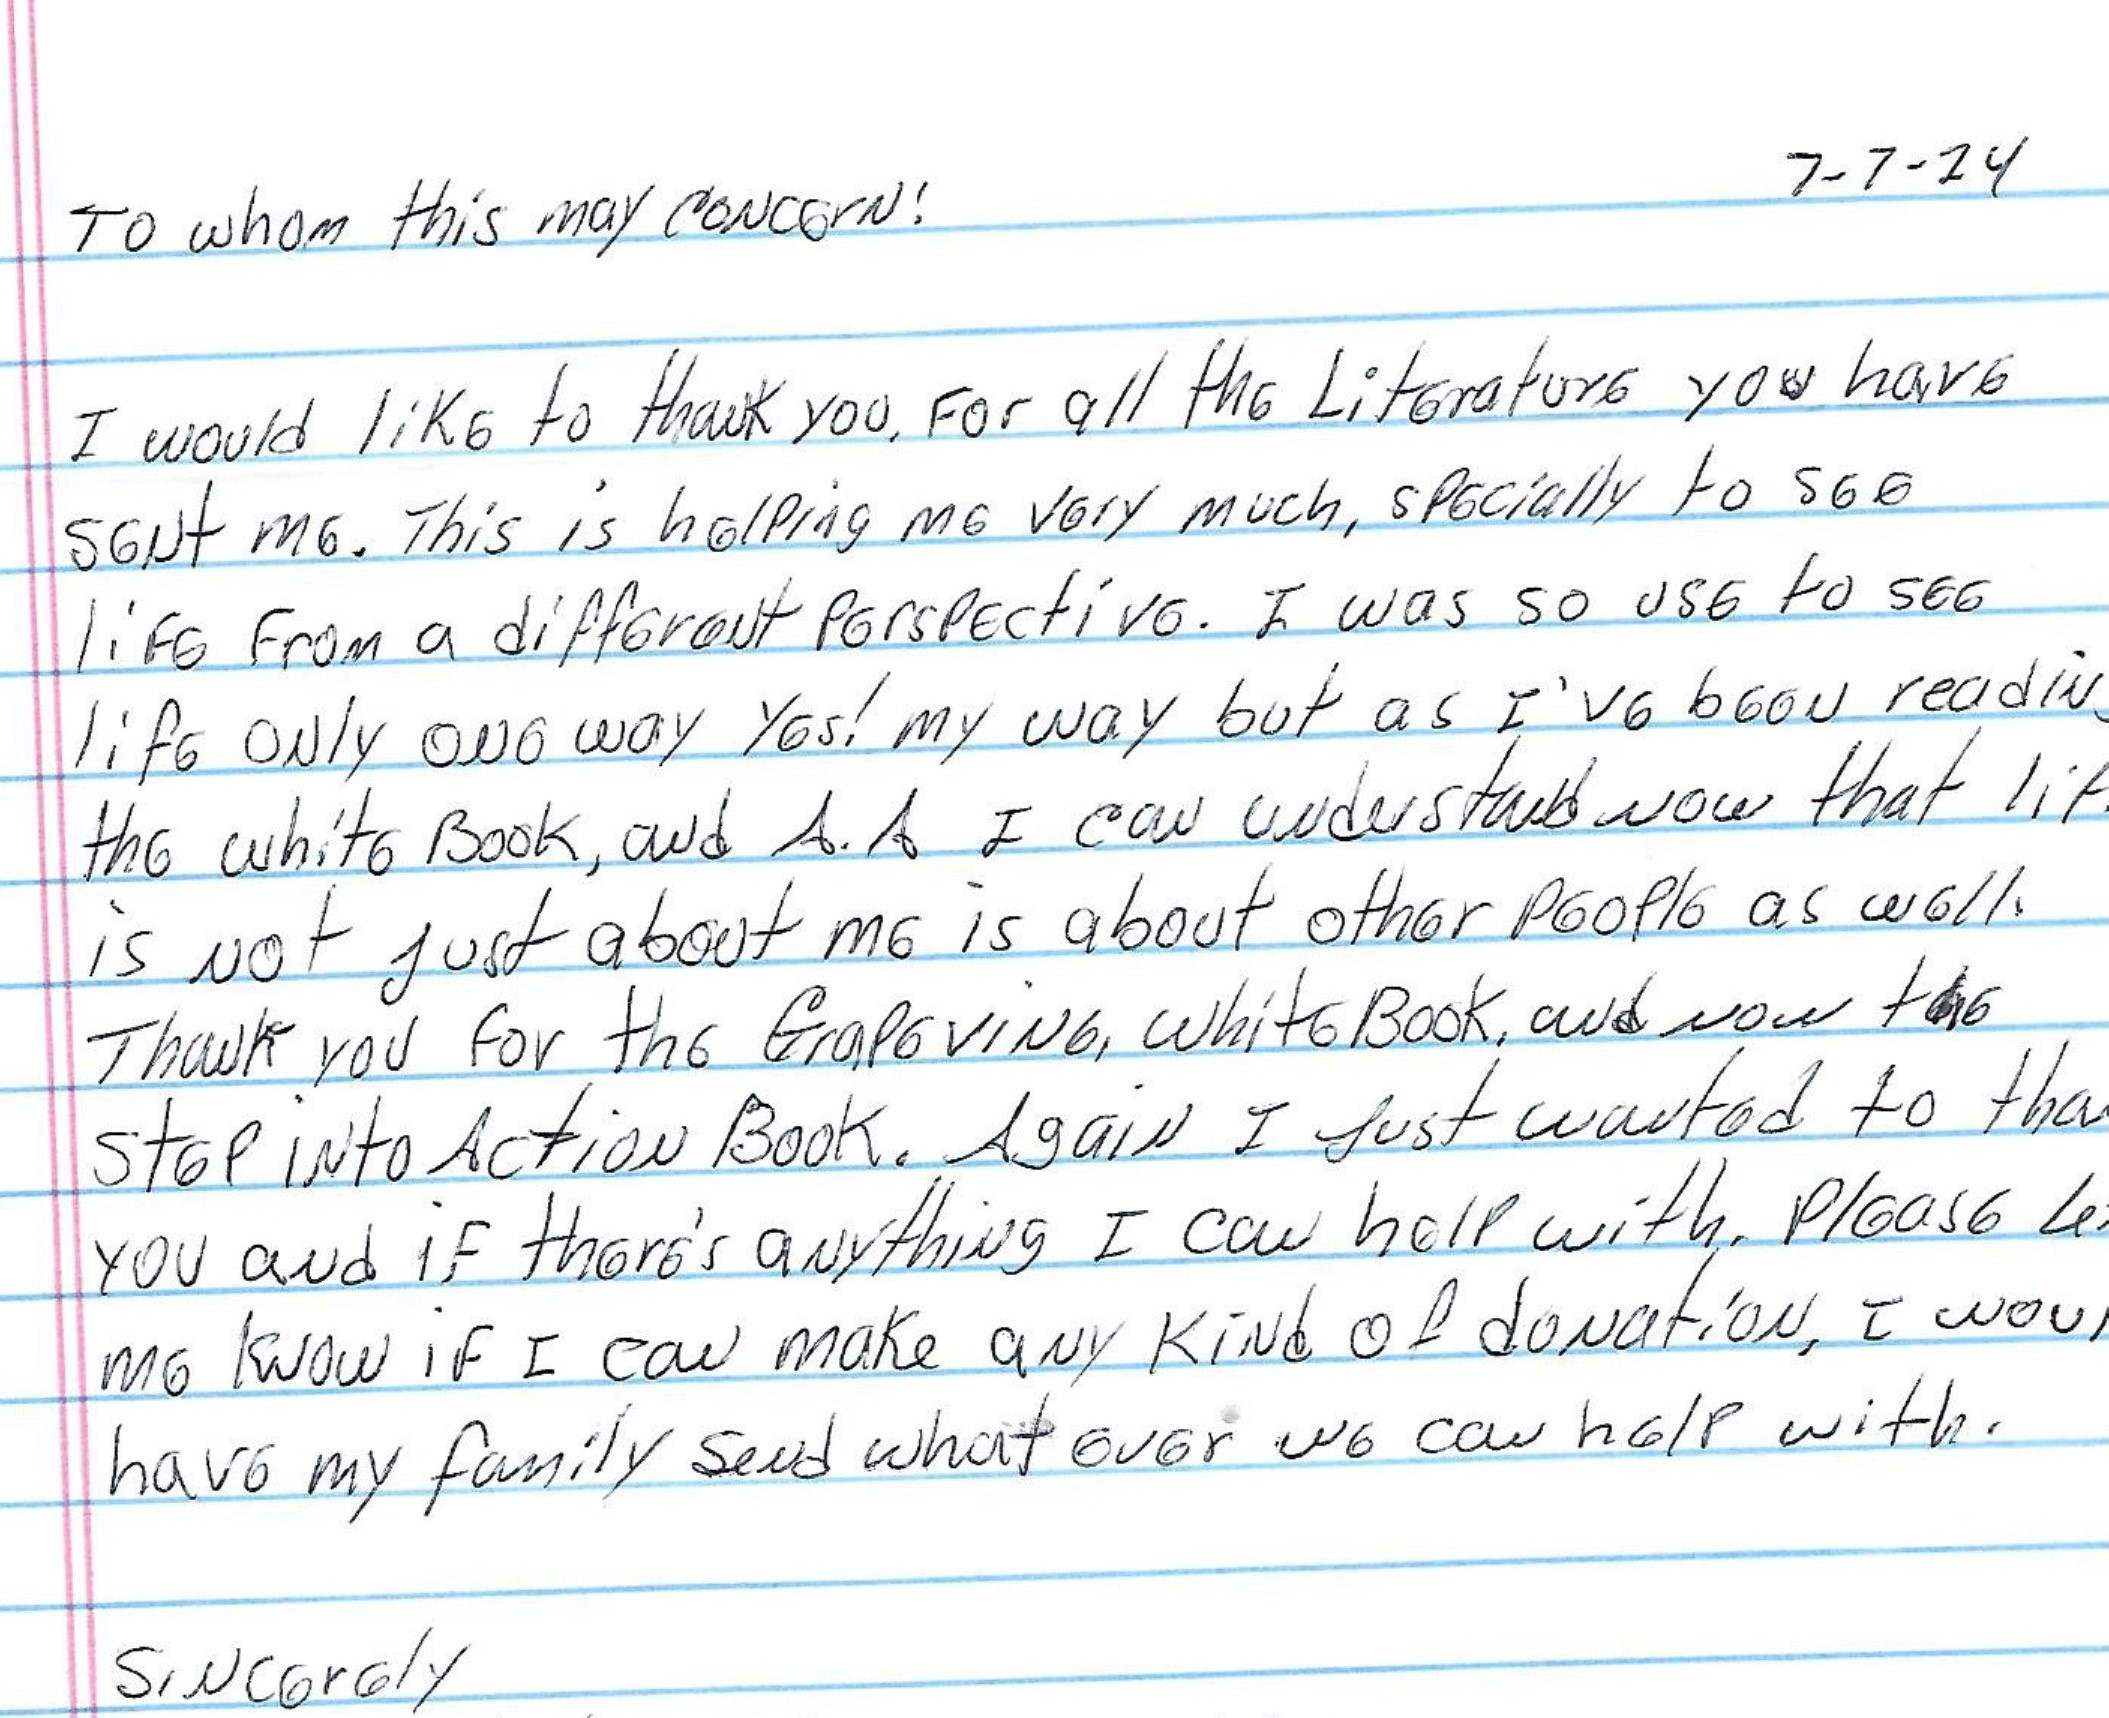 7-7-24
To whom this may concern!
I would like to thank you, For all the Literature you have
sent me. This is helping me very much, specially to see
life From a different Perspective. I was so use to see
life only one way Yes! my way but as I've been readin
the white Book, and A.A I can understand now that lif
is not just about me is about other People as well.
Thank you for the Grapevine, White Book, and now the
Step into Action Book. Again I Just wanted to tha
you and if there's anything I can help with, Please Le
me know if I can make any Kind of donation, I wou
have my family send what ever we can help with.
Sincerely